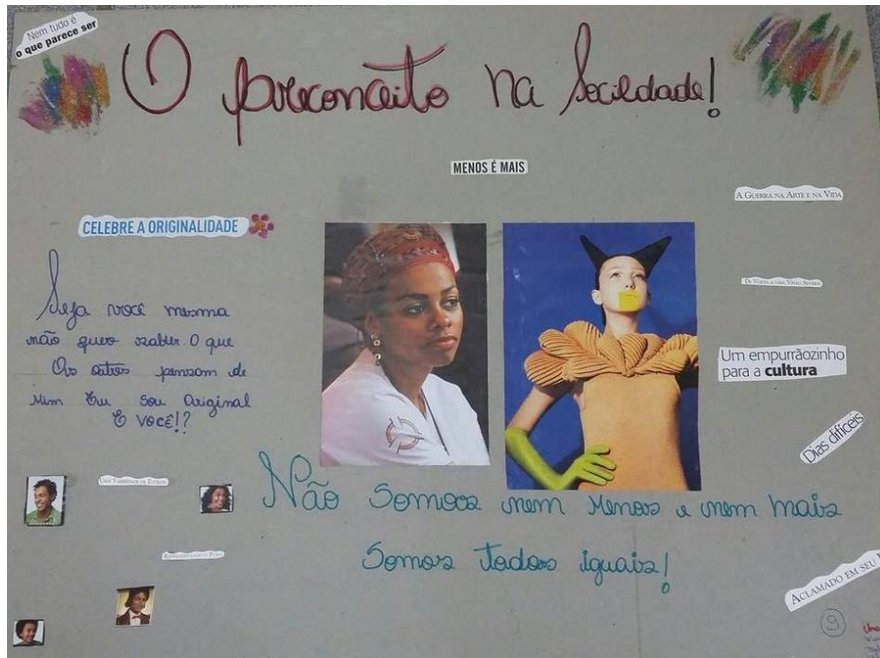 Nem tudo é
o que parece ser
O preconceito na Socildade!
MENOS É MAIS
A GUERRA NA ARTE E NA VIDA
CELEBRE A ORIGINALIDADE
Seja você mesma
não quero saber O que
Os outros pensam de
Mim Eu sou Original
E VOCÊ!?
DE VOLTA A UMA VISÃO SEVERA
Um empurrãozinho
para a cultura
Dias difíceis
UMA VARIEDADE DE ESTILOS
Não Somos nem Menos e nem mais
Somos Todos iguais!
ACLAMADO EM SEU
9